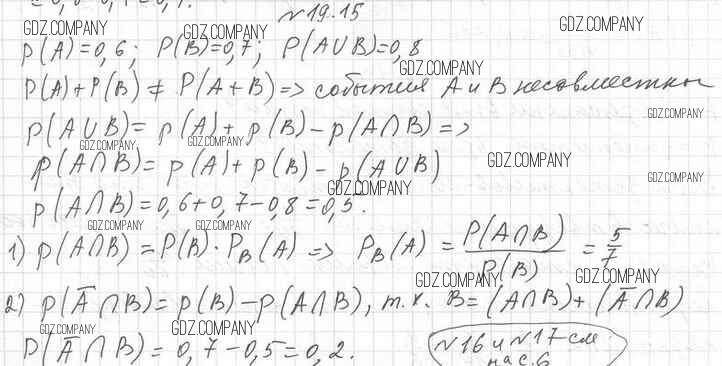 №19.15
GDZ.COMPANY GDZ.COMPANY
p(A)=0,6; P(B)=0,7; P(A∪B)=0,8
GDZ.COMPANY
P(A)+P(B)≠P(A+B)=> события A и B несовместны
GDZ.COMPANY
p(A∪B)=p(A)+p(B)-p(A∩B)=>
GDZ.COMPANY GDZ.COMPANY
p(A∩B)=p(A)+p(B)-p(A∪B) GDZ.COMPANY
GDZ.COMPANY GDZ.COMPANY
p(A∩B)=0,6+0,7-0,8=0,5.
GDZ.COMPANY GDZ.COMPANY
1) p(A∩B)=P(B)·P_B(A) => P_B(A)=P(A∩B)/P(B)=5/7
GDZ.COMPANY GDZ.COMPANY
2) p(Ā∩B)=p(B)-p(A∩B), т.к. B=(A∩B)+(Ā∩B)
GDZ.COMPANY GDZ.COMPANY
p(Ā∩B)=0,7-0,5=0,2.
№16 и №17 см
на с.6